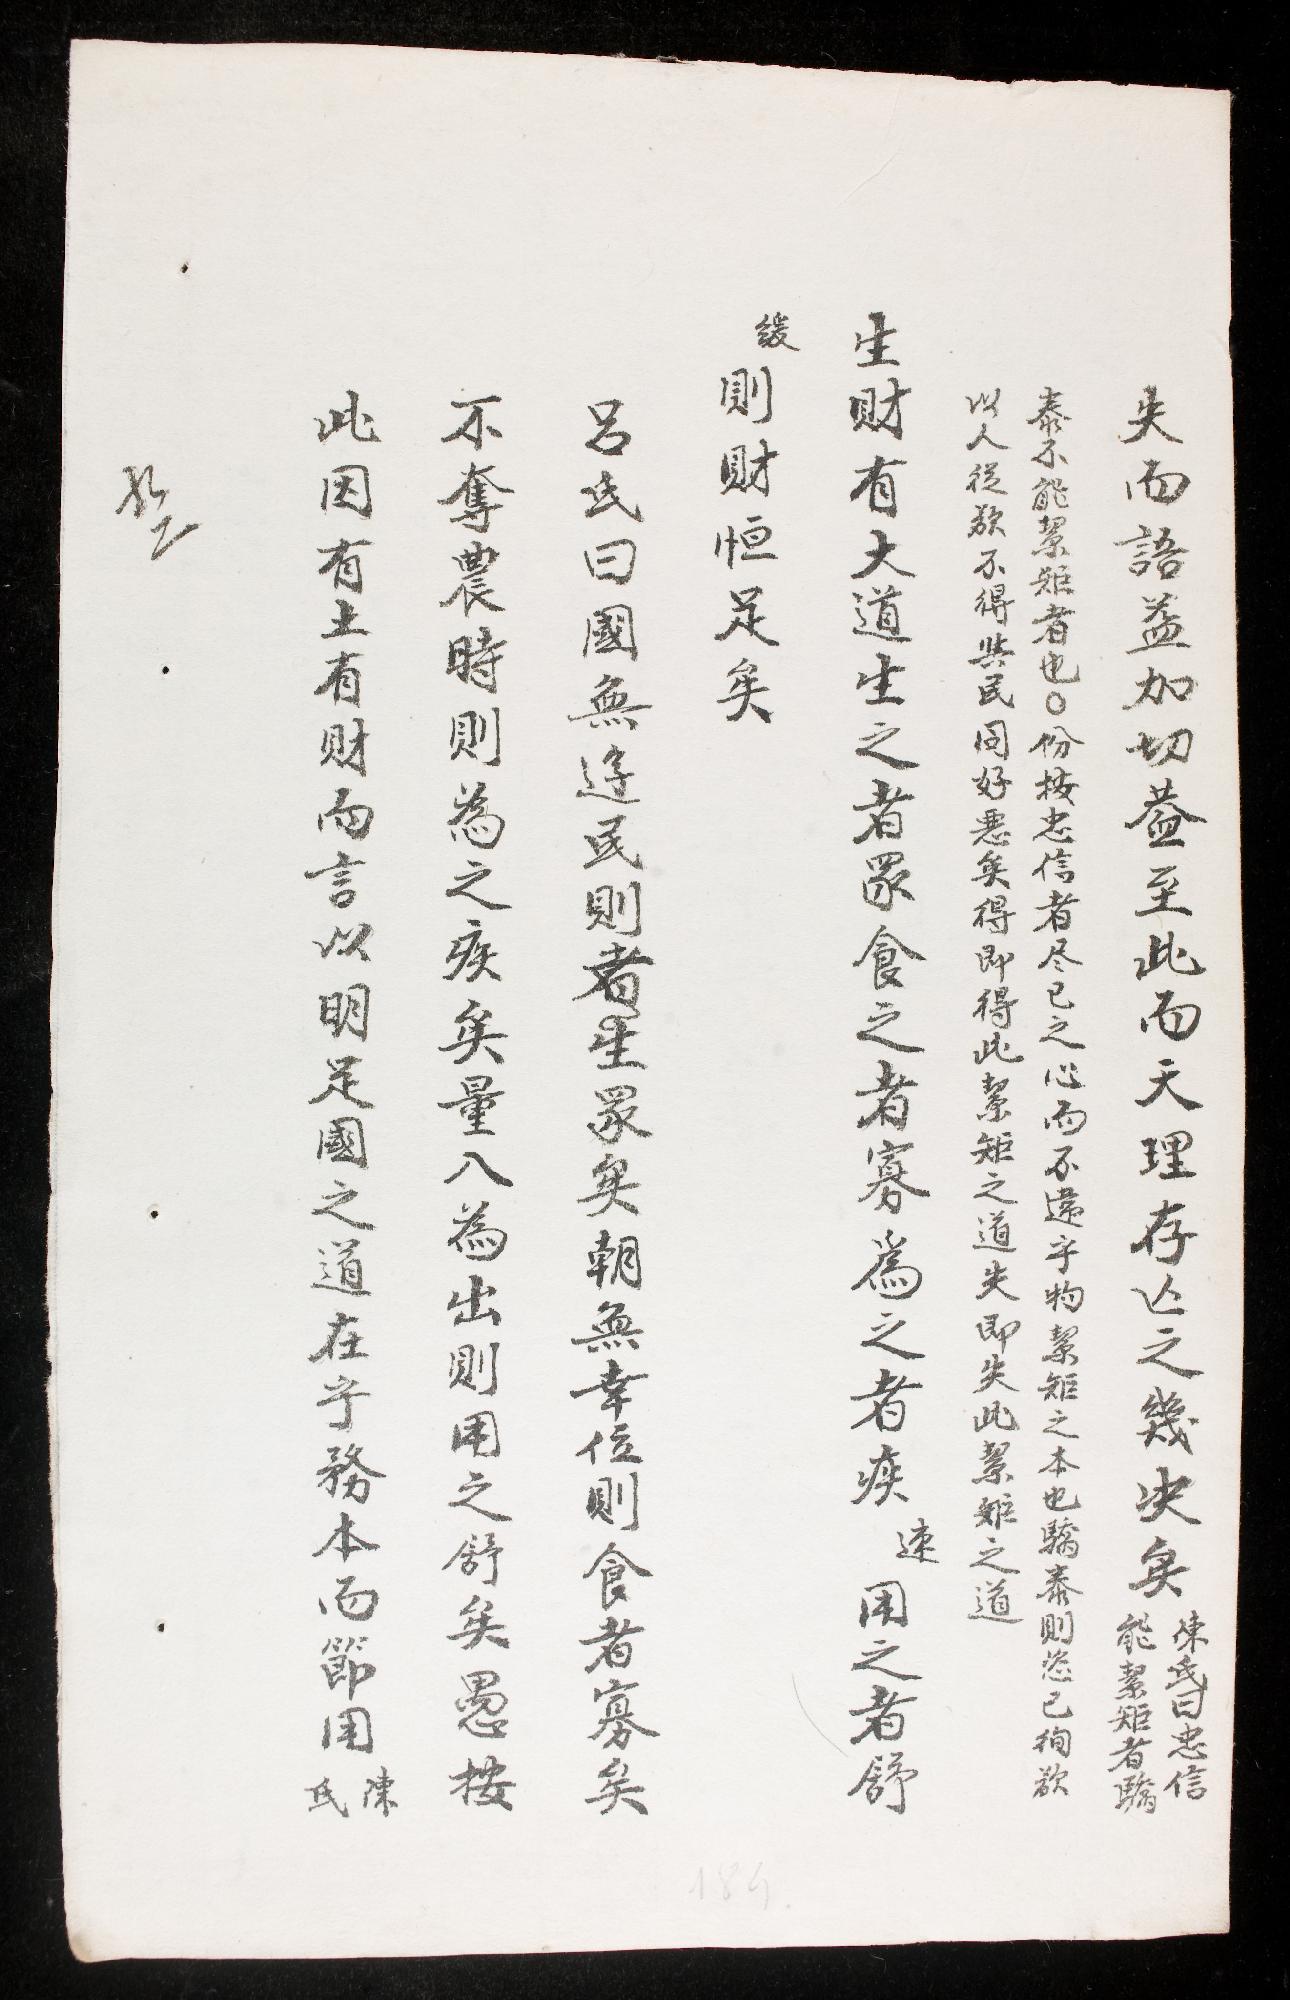 失而語益加切葢至此而天理存亾之幾决矣
陳氏曰忠信
能絜矩者驕
泰不能絜矩者也〇份按忠信者尽己之心而不違乎物絜矩之本也驕泰則恣己徇欲
以人從欲不得與民同好悪矣得即得此絜矩之道失即失此絜矩之道
生財有大道生之者眾食之者寡爲之者疾
速
用之者舒
緩
則財恒足矣
吕氏曰國無遊民則者生眾矣朝無幸位則食者寡矣
不奪農時則為之疾矣量入為出則用之舒矣愚按
此因有土有財而言以明足國之道在乎務本而節用
陳
氏
184